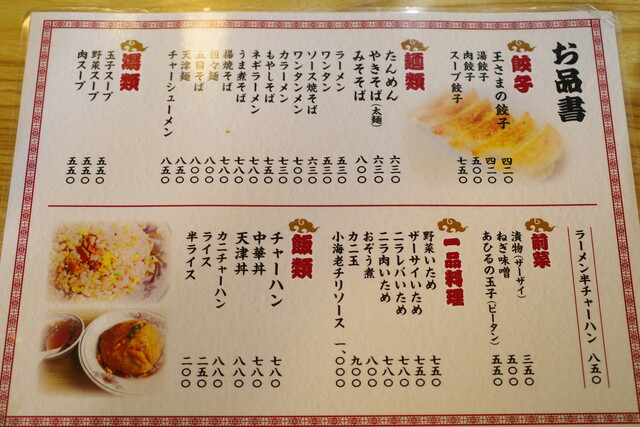 お品書
餃子
王さまの餃子 四二〇
湯餃子 四二〇
肉餃子 五〇〇
スープ餃子 七五〇
麺類
たんめん 六三〇
やきそば(太麺) 六三〇
みそそば 八〇〇
ラーメン 五三〇
ワンタン 五三〇
ソース焼そば 六三〇
ワンタンメン
カラーメン 七三〇
もやしそば
ネギラーメン 七八〇
うま煮そば 七八〇
揚焼そば 七八〇
担々麺 八〇〇
五目そば 八〇〇
天津麺 八五〇
チャーシューメン 八五〇
湯類
玉子スープ 五五〇
野菜スープ 五五〇
肉スープ 五五〇
ラーメン半チャーハン 八五〇
前菜
漬物(ザーサイ) 三五〇
ねぎ味噌 五〇〇
あひるの玉子(ピータン) 五五〇
一品料理
野菜いため 七五〇
ザーサイいため 七五〇
ニラレバいため 七八〇
ニラ肉いため 七八〇
おぞう煮 八〇〇
カニ玉 九〇〇
小海老チリソース 一、〇〇〇
飯類
チャーハン 七八〇
中華丼 七八〇
天津丼 八八〇
カニチャーハン 八八〇
ライス 二五〇
半ライス 二〇〇